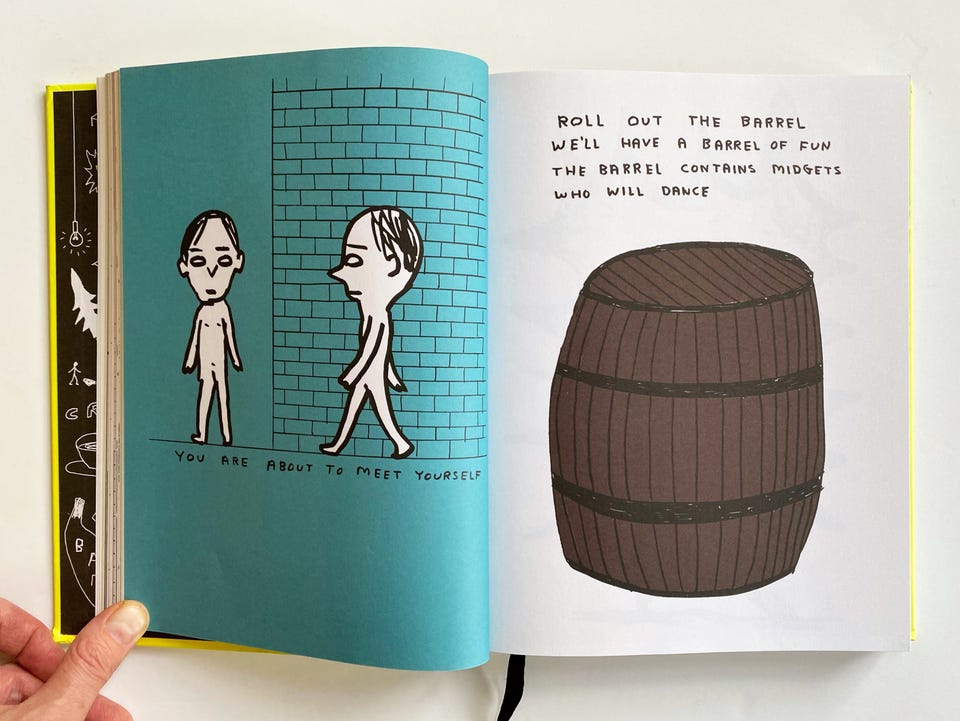 YOU ARE ABOUT TO MEET YOURSELF
ROLL OUT THE BARREL
WE'LL HAVE A BARREL OF FUN
THE BARREL CONTAINS MIDGETS
WHO WILL DANCE